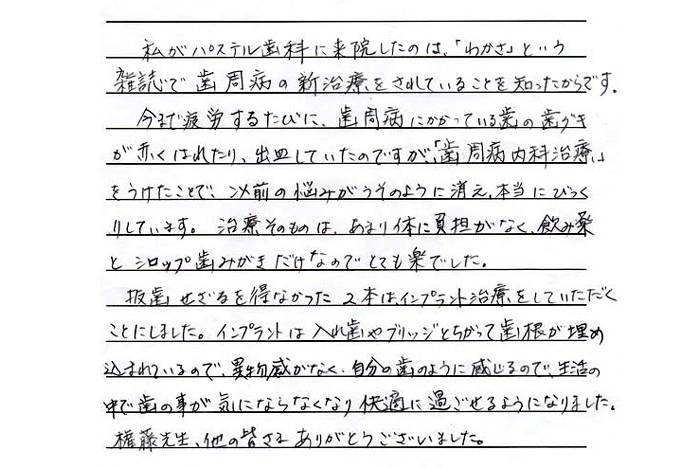 私がパステル歯科に来院したのは、「わかさ」という
雑誌で歯周病の新治療をされていることを知ったからです。
今まで疲労するたびに、歯周病にかかっている歯の歯グキ
が赤くはれたり、出血していたのですが、「歯周病内科治療」
をうけたことで、以前の悩みがうそのように消え、本当にびっく
りしています。治療そのものは、あまり体に負担がなく、飲み薬
とシロップ歯みがきだけなのでとても楽でした。
抜歯せざるを得なかった2本は、インプラント治療をしていただく
ことにしました。インプラントは入れ歯やブリッジとちがって歯根が埋め
込まれているので、異物感がなく、自分の歯のように感じるので、生活の
中で歯の事が気にならなくなり快適に過ごせるようになりました。
権藤先生、他の皆さまありがとうございました。